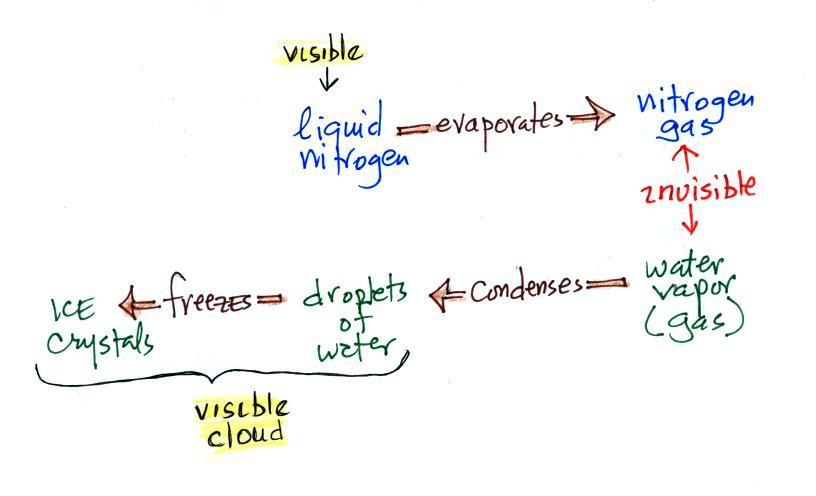 visible
liquid
nitrogen
evaporates
nitrogen
gas
invisible
water
vapor
(gas)
condenses
droplets
of
water
freezes
ICE
crystals
visible
cloud